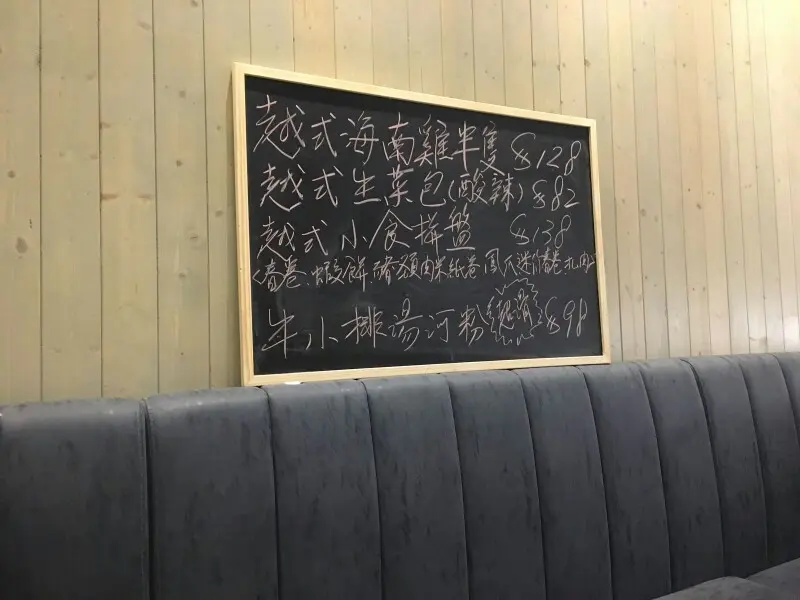 越式海南雞半隻 $128
越式生菜包(酸辣) $82
越式小食拼盤 $138
春卷.蝦餅.豬頸肉米紙卷
牛小排湯河粉 $98